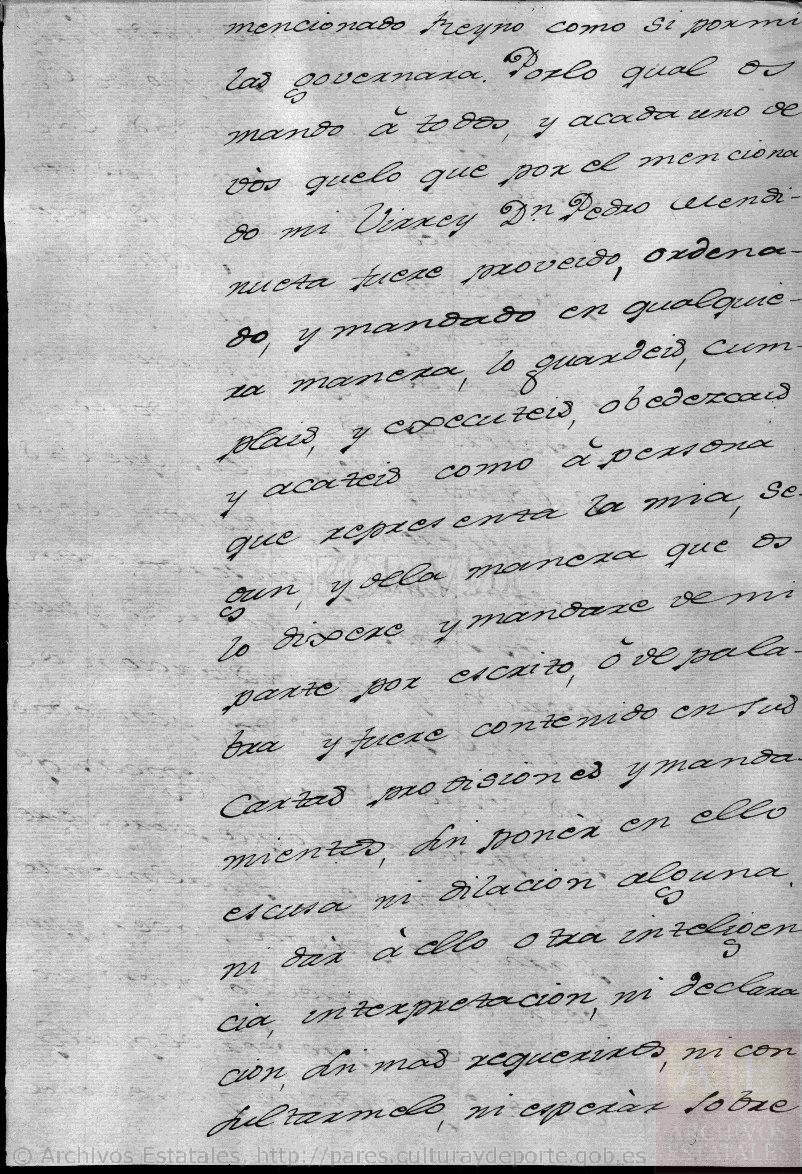 mencionado Reyno como si por mi
las governara. Por lo qual os
mando à todos, y acada uno de
vòs quelo que por el menciona
do mi Virrey Dn. Pedro Mendi-
nueta fuere proveido, ordena-
do, y mandado en qualquie-
ra manera, lo guardeis, cum-
plais, y executeis, obedezcais
y acateis como à persona
que representa la mia, se-
gun, y dela manera que os
lo dixere y mandare de mi
parte por escrito, ò de pala-
bra y fuere contenido en sus
Cartas provisiones y manda-
mientos, sin ponèr en ello
escusa ni dilacion alguna.
ni dàr à ello otra inteligen
cia, interpretacion, ni declara
cion, sin mas requeriros, ni con
sultarmelo, ni esperàr sobre
© Archivos Estatales, http://pares.culturaydeporte.gob.es